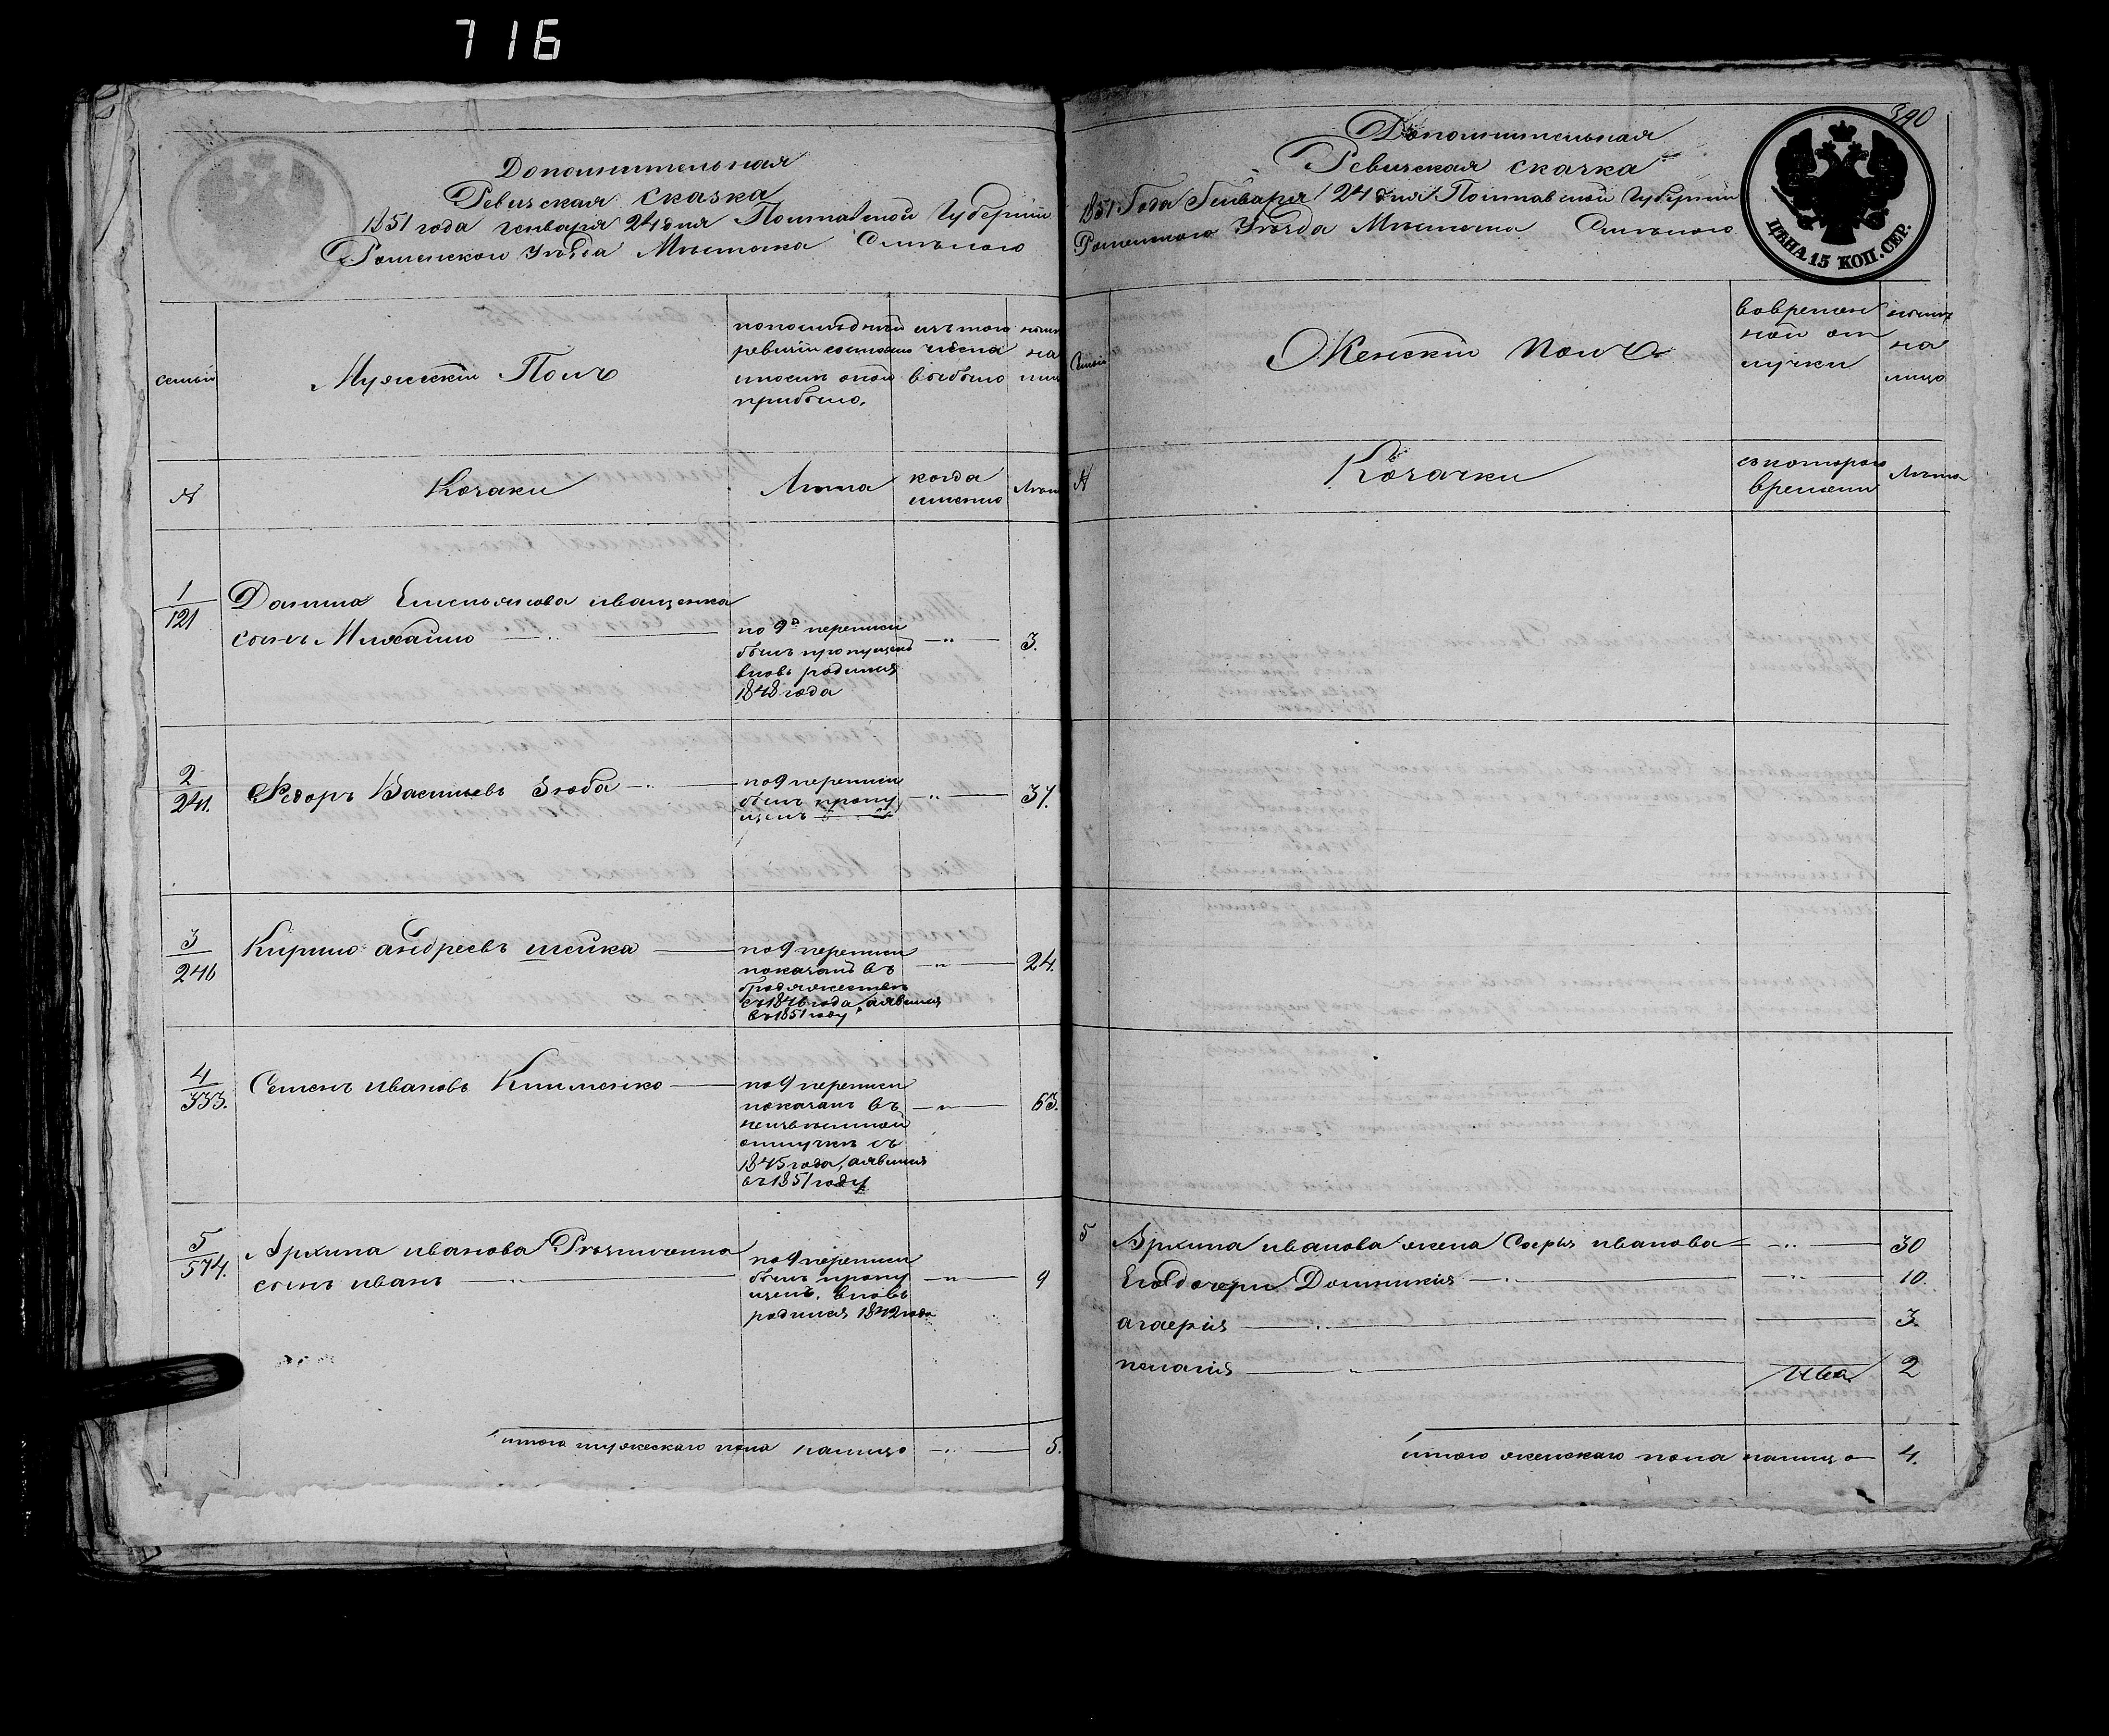 716
Дополнительная
Ревизская сказка
1851 года генваря 24 дня Полтавской Губернии
Роменского Уезда Местечка Смелого
семьи
Мужеский Полъ
по последней
ревизии состояло
и после оной
прибыло.
изъ того
числа
выбыло
ныне
на
лицо
№
Козаки
Лета
когда
именно
Лета
1
121
Данила Емельянова иващенка
сынъ Михайло
по 9й переписи
былъ пропущенъ
вновь родился
1848 года
3.
2
241.
Федоръ Васильевъ Зюба
по 9 переписи
былъ пропу
щенъ
37.
3
246
Кирило андреевъ шейка
по 9 переписи
показанъ въ
бродяжестве
съ 1846 года, явился
въ 1851 году
24.
4
333.
Семенъ ивановъ Клименко
по 9 переписи
показанъ въ
неизвестной
отлучке съ
1845 года, явился
въ 1851 году
63.
5
574.
Архипа иванова
сынъ иванъ
по 9 переписи
былъ пропу
щенъ. вновь
родился 1842 года
9
итого мужескаго пола налицо
5.
390
Дополнительная
Ревизская сказка
1851 Года Генваря 24 дня Полтавской Губернии
Роменского Уезда Местечка Смелого
ЦѢНА 15 КОП. СЕР.
Семьи
Женский Полъ
во времен
ной от
лучки
ныне
на
лицо
№
Козачки
съ котораго
времени
Лета
5
Архипа иванова жена Софья иванова
30
Его дочери Домникия
10.
агафия
3.
пелагия
2
итого женскаго пола налицо
4.